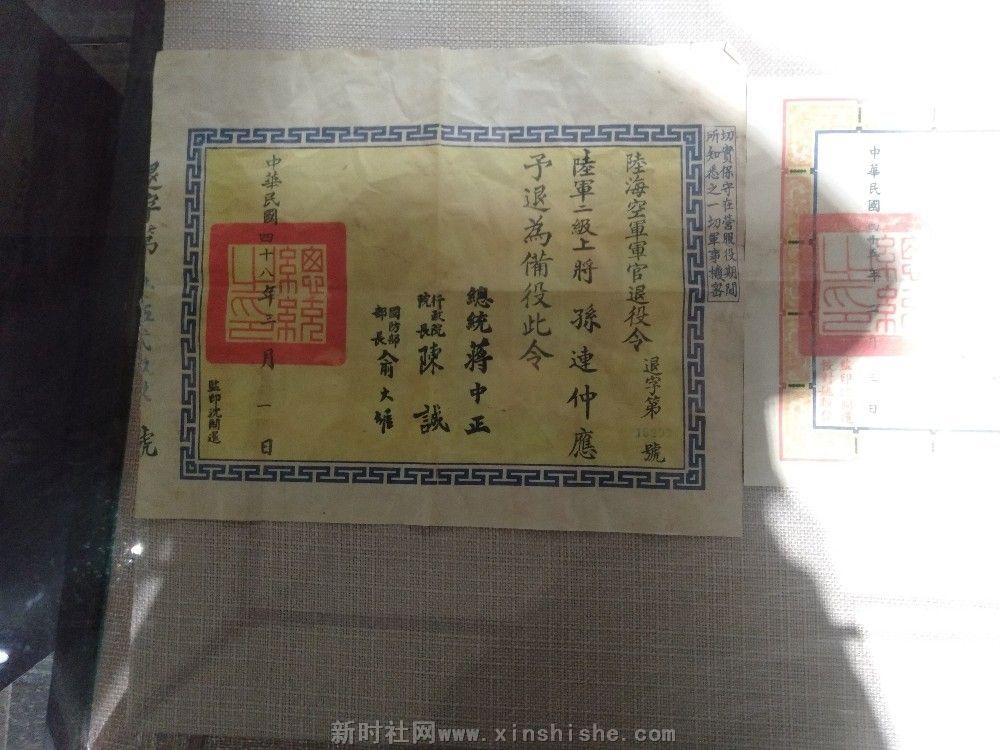 切實保守在營服役期間
所知悉之一切軍事機密
陸海空軍軍官退役令
退字第
號
陸軍二級上將孫連仲應
予退為備役此令
總統蔣中正
行政院
院長陳誠
國防部
部長俞大維
中華民國四十八年三月一日
監印沈開運
總統之印
退字第
號
中華民國
年
月三日
新时社网www.xinshishe.com